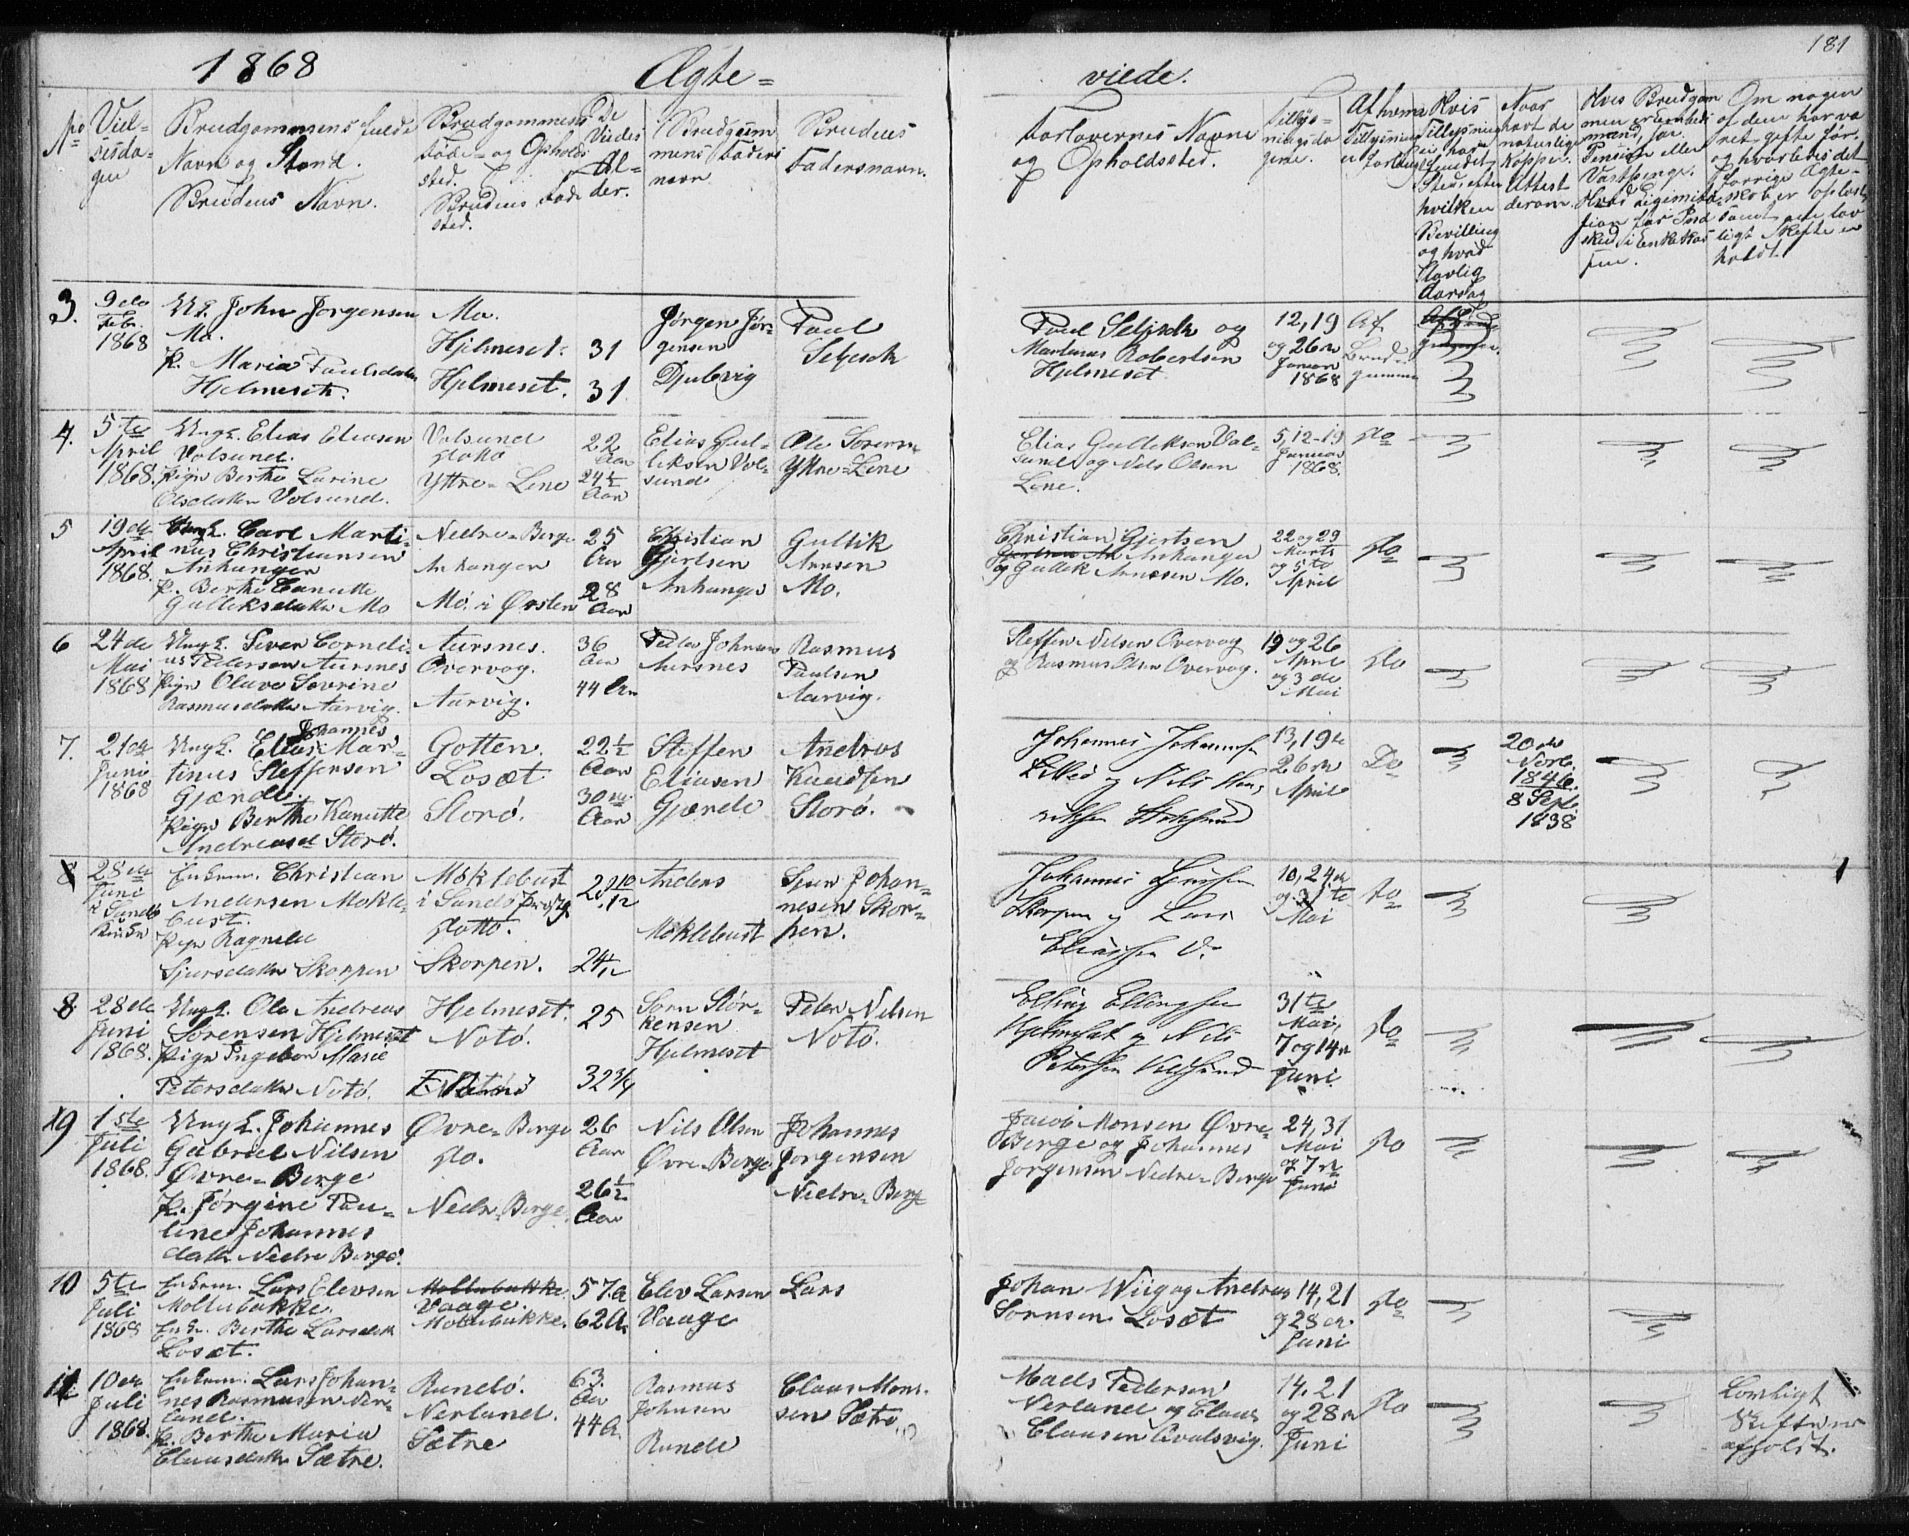 1868 Ægte= viede. 181
No Viel=
sesda=
gen
Brudgommens fulde
Navn og Stand.
Brudens Navn.
Brudgommens
Føde= og Opholds
sted.
Brudens Føde
sted.
De
Viedes
Al=
der.
Brudgom
mens Faders
navn
Brudens
Fadersnavn.
Forlovernes Navne
og Opholdssted.
Tillys=
ningsda
gene.
Af hvem
Tillysning
er
forlangt
Hvis
Tillysning
ei har
fundet
Sted, efter
hvilken
Bevilling
og hvad
lovlig
Aarsag
Naar
havt de
naturlige
Kopper.
Attest
derom.
Hvis Brudgom
men er Embeds
mand, for
Pension eller
Vartpenge.
Om nogen
af dem har væ
ret gifte før,
og hvorledes det
forrige Ægte=
skab er opløst
samt om lov
ligt Skifte er
holdt.
3. 9de
Febr.
1868
Ul. John Jørgensen
Mo.
P. Maria Paulsdatter
Hjelmeseth.
Mo.
Hjelmeset.
Hjelmeset.
31
31
Jørgen Jør=
gensen
Djubvig
Paul
Seljseth
Paul Seljseth og
Martinus Robertsen
Hjelmeset
12, 19
og 26n
Januar
1868
Af
Brud=
gommen
4. 5te
April
1868.
Ungk. Elias Eliasen
Volsund.
Pige Berthe Lurine
Olsdatter Volsund.
Volsund
ditto
Yttre=Lene
22
Aar
24½
Aar
Elias Gul=
liksen Vol=
sund
Ole Sørens.
Yttre=Lene
Elias Gulliksen Vol=
sund og Nils Olsen
Lene.
5, 12-19
Januar
1868.
do
5 19de
April
1868.
Ungk. Carl Marti=
nus Christiansen
Anhanger
P. Berthe Canutte
Gulliksdatter Mo
Nedre=Berge
Anhangen
Mo i Ørsten
25
Aar
28
Aar
Christian
Gjertsen
Anhanger
Gullik
Arnsen
Mo.
Christian Gjertsen
Anhanger
og Gullik Arnesen Mo.
22 og 29
Marts
og 5te
April
do
6 24de
Mai
1868
Ungk. Sever Corneli=
us Pedersen Aursnes
Pige Olave Sevrine
Rasmusdatter Aarvig.
Aursnes.
Overvog.
Aarvig.
36
Aar
44 Aar
Peder Johnsen
Aursnes
Rasmus
Paulsen
Aarvig.
Steffen Nilsen Overvog
og Rasmus Olsen Overvog.
19 og 26
April
og 3de
Mai
do
7. 21de
Juni
1868
Johannes
Ungk. Elias Mar=
tinus Steffensen
Gjænde.
Pige Berthe Kanutte
Andreasd Storø.
Gotten.
Losæt
Storø.
22½
Aar
30
Aar
Steffen
Eliasen
Gjærde
Andreas
Knudsen
Storø.
Johannes Johannesen
13, 19de
26n
April
Do
20de
Novb.
1846.
8 Sept.
1838
8 28de
Juni
Enkem. Christian
Andersen Mokle=
bust.
Pige Ragnilde
Sjursdatter Skorpen
Møklebust
i Sandø
ditto.
Skorpen.
Anders
Møklebust
Sjur Johan=
nesen Skor=
pen.
Johannes
Skorpen og Lars
Eliassen
10, 24n
og 31te
Mai
do
1
8 28de
Juni
1868.
Ungk. Ole Andreas
Sørensen Hjelmeset
Pige Ingebor Marie
Petersdatter Notø.
Hjelmeset.
Notø.
25
32¾
Sørn Stør=
kensen
Hjelmeset
Peter Nilsen
Notø.
Elling Ellingsen
Hjelmeset og Nils
Petersen Volsund
31te
Mai,
7 og 14n
Juni.
do
19 1ste
Juli
1868.
Ungk. Johannes
Gabriel Nilsen
Øvre=Berge
P. Jørgine Pau=
line Johannes
datter Nedre Berge.
Øvre=Berge
do.
Nedre=Berge.
26
Aar
26½
Aar
Nils Olsen
Øvre=Berge
Johannes
Jørgensen
Nedre=Berge
Jacob Monsen Øvre=
Berge og Johannes
Jørgensen Nedre=Berge
24, 31
Mai
og 7n
Juni
do
10 5te
Juli
1868
Enkem. Lars Elevsen
Mollebakke.
Enke. Berthe Larsdatter
Losæt.
Mollebakke.
Vaage.
Mollebakke.
57 A
62 A.
Elev Larsen
Vaage
Lars
Johan Wiig og Andreas
Sørnsen Losæt
14, 21
og 28de
Juni
do
11 10de
Juli
1868.
Enkem. Lars Johan=
nes Rasmussen Ner=
land.
P. Berthe Maria
Clausdatter Sætre.
Rundø.
Nerland.
Sætre
63.
Aar
44 A.
Rasmus
Johnsen
Runde
Claus Mons=
sen Sætre
Mads Pedersen
Nerland og Claus
Clausen Kvalsvig.
14. 21
og 28n
Juni
do
Lovligt
Skifte er
afholdt.